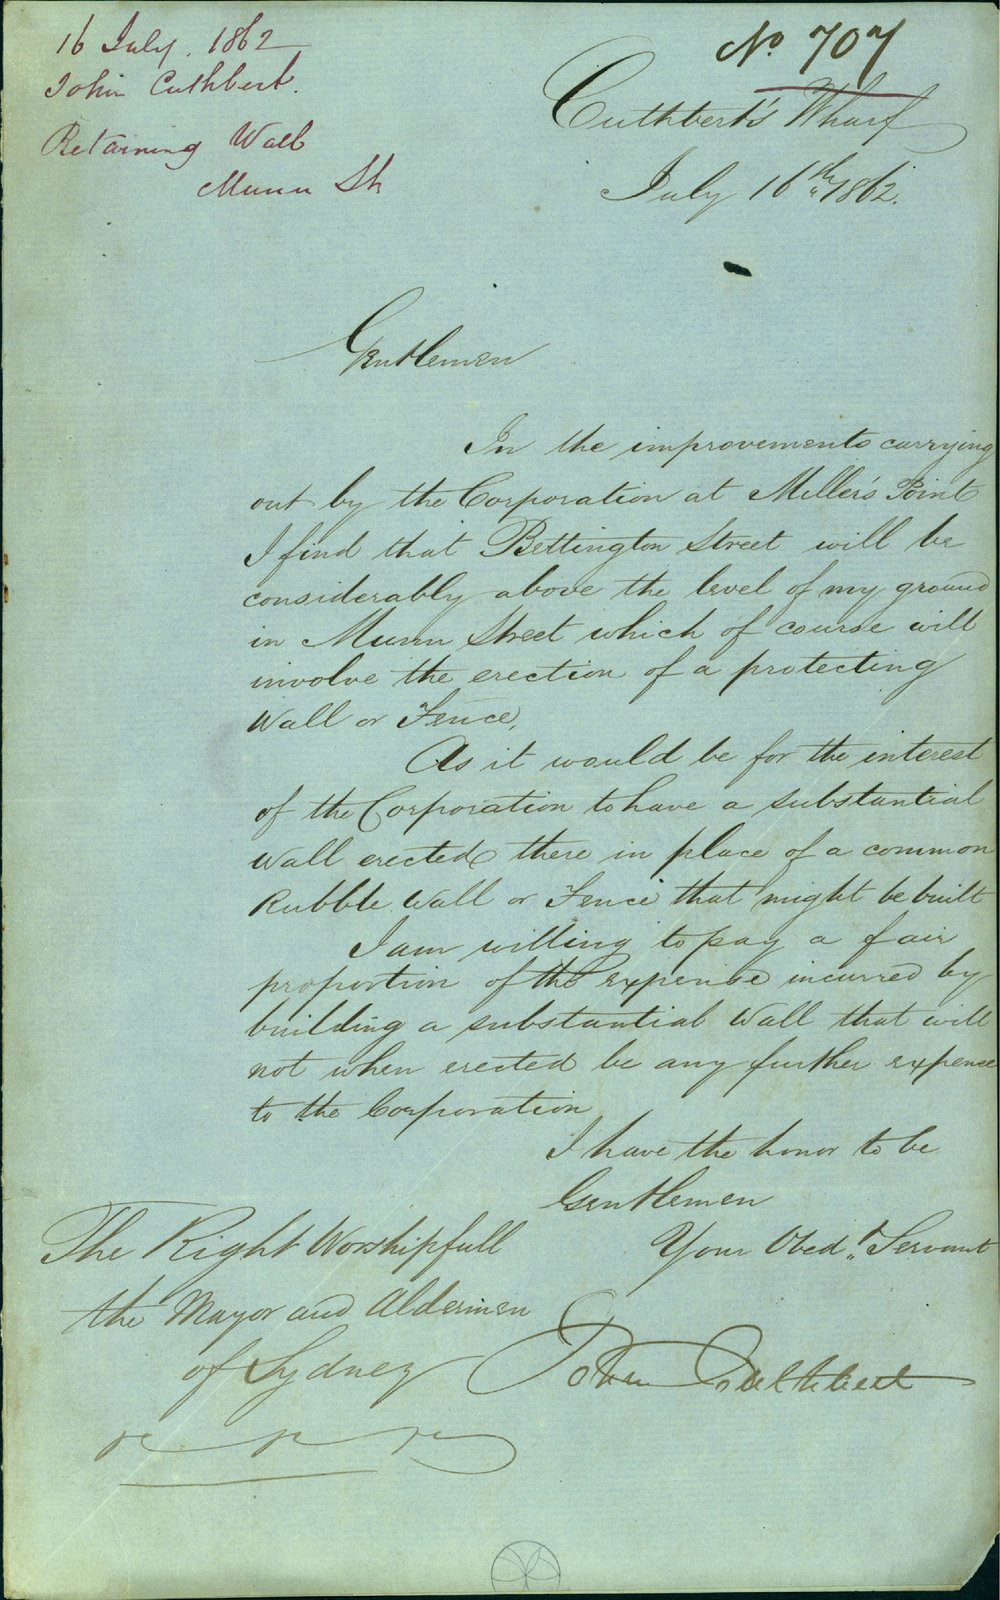 16 July. 1862
John Cuthbert.
Retaining Wall
Munn St
No 707
Cuthbert's Wharf
July 16th 1862.
Gentlemen
In the improvements carrying
out by the Corporation at Miller's Point
I find that Bettington Street will be
considerably above the level of my ground
in Munn Street which of course will
involve the erection of a protecting
Wall or Fence,
As it would be for the interest
of the Corporation to have a substantial
Wall erected there in place of a common
Rubble Wall or Fence that might be built
I am willing to pay a fair
proportion of the expense incurred by
building a substantial Wall that will
not when erected be any further expence
to the Corporation
I have the honor to be
Gentlemen
Your Obedt. Servant
John Cuthbert
The Right Worshipfull
the Mayor and Aldermen
of Sydney